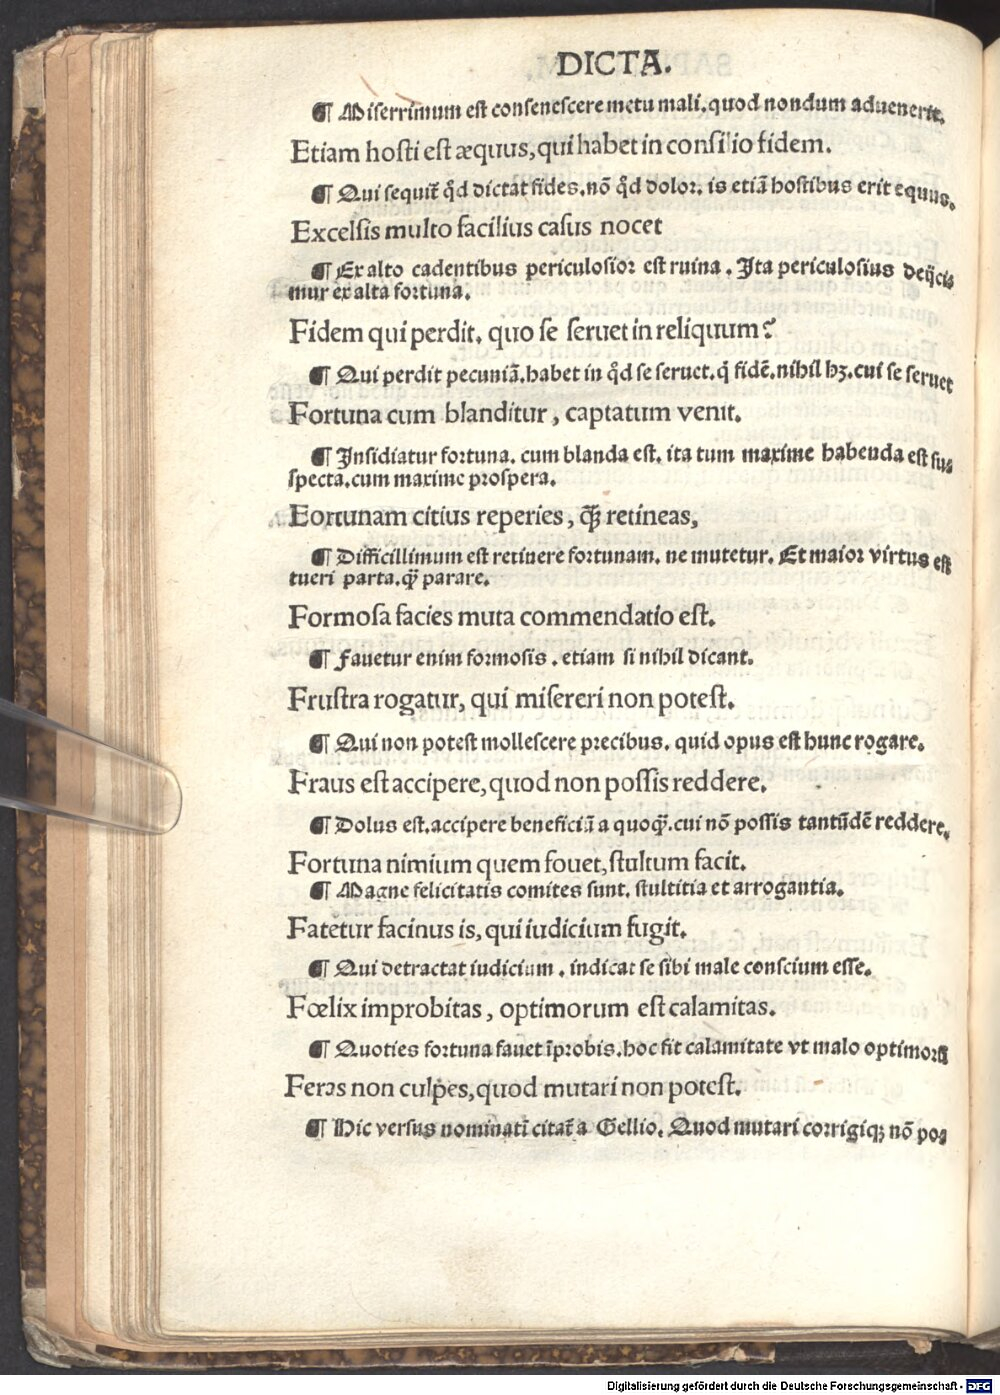 DICTA.
¶ Miserrimum est consenescere metu mali, quod nondum aduenerit.
Etiam hosti est æquus, qui habet in consilio fidem.
¶ Qui sequit̃ q̃d dictat fides, nõ q̃d dolor, is etiã hostibus erit equus.
Excelsis multo facilius casus nocet
¶ Ex alto cadentibus periculosior est ruina. Ita periculosius deijci⸗
mur ex alta fortuna.
Fidem qui perdit, quo se seruet in reliquum?
¶ Qui perdit pecuniã, habet in q̃d se seruet, q̃ fidẽ, nihil hꝫ, cui se seruet
Fortuna cum blanditur, captatum venit.
¶ Insidiatur fortuna, cum blanda est, ita tum maxime habenda est su⸗
specta, cum maxime prospera.
Eortunam citius reperies, q̃ꝫ retineas,
¶ Difficillimum est retinere fortunam, ne mutetur. Et maior virtus est
tueri parta, q̃ parare.
Formosa facies muta commendatio est.
¶ Fauetur enim formosis, etiam si nihil dicant.
Frustra rogatur, qui misereri non potest.
¶ Qui non potest mollescere precibus, quid opus est hunc rogare.
Fraus est accipere, quod non possis reddere.
¶ Dolus est, accipere beneficiũ a quoq̃, cui nõ possis tantũdẽ reddere.
Fortuna nimium quem fouet, stultum facit.
¶ Magne felicitatis comites sunt, stultitia et arrogantia.
Fatetur facinus is, qui iudicium fugit.
¶ Qui detractat iudicium, indicat se sibi male conscium esse.
Fœlix improbitas, optimorum est calamitas.
¶ Quoties fortuna fauet ĩprobis, hoc fit calamitate vt malo optimorũ
Feras non culpes, quod mutari non potest.
¶ Hic versus nominatĩ citat̃ a Gellio. Quod mutari corrigiqꝫ nõ pos
Digitalisierung gefördert durch die Deutsche Forschungsgemeinschaft - DFG